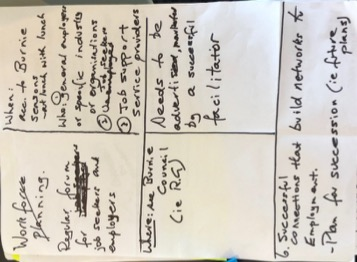 Work force
Planning.
Regular forum
for
job seekers and
employers
When:
acc. to Burnie
seasons
-at lunch with lunch
Who: general employers
or specific industry
or organisations
① Job Seekers
② Job Support
Service providers
Where: Burnie
Council
(ie RG)
Needs to be
advertised,
by a successful
facilitator
6. Successful
connections that build networks to
Employment.
- Plan for succession (ie future
plans)